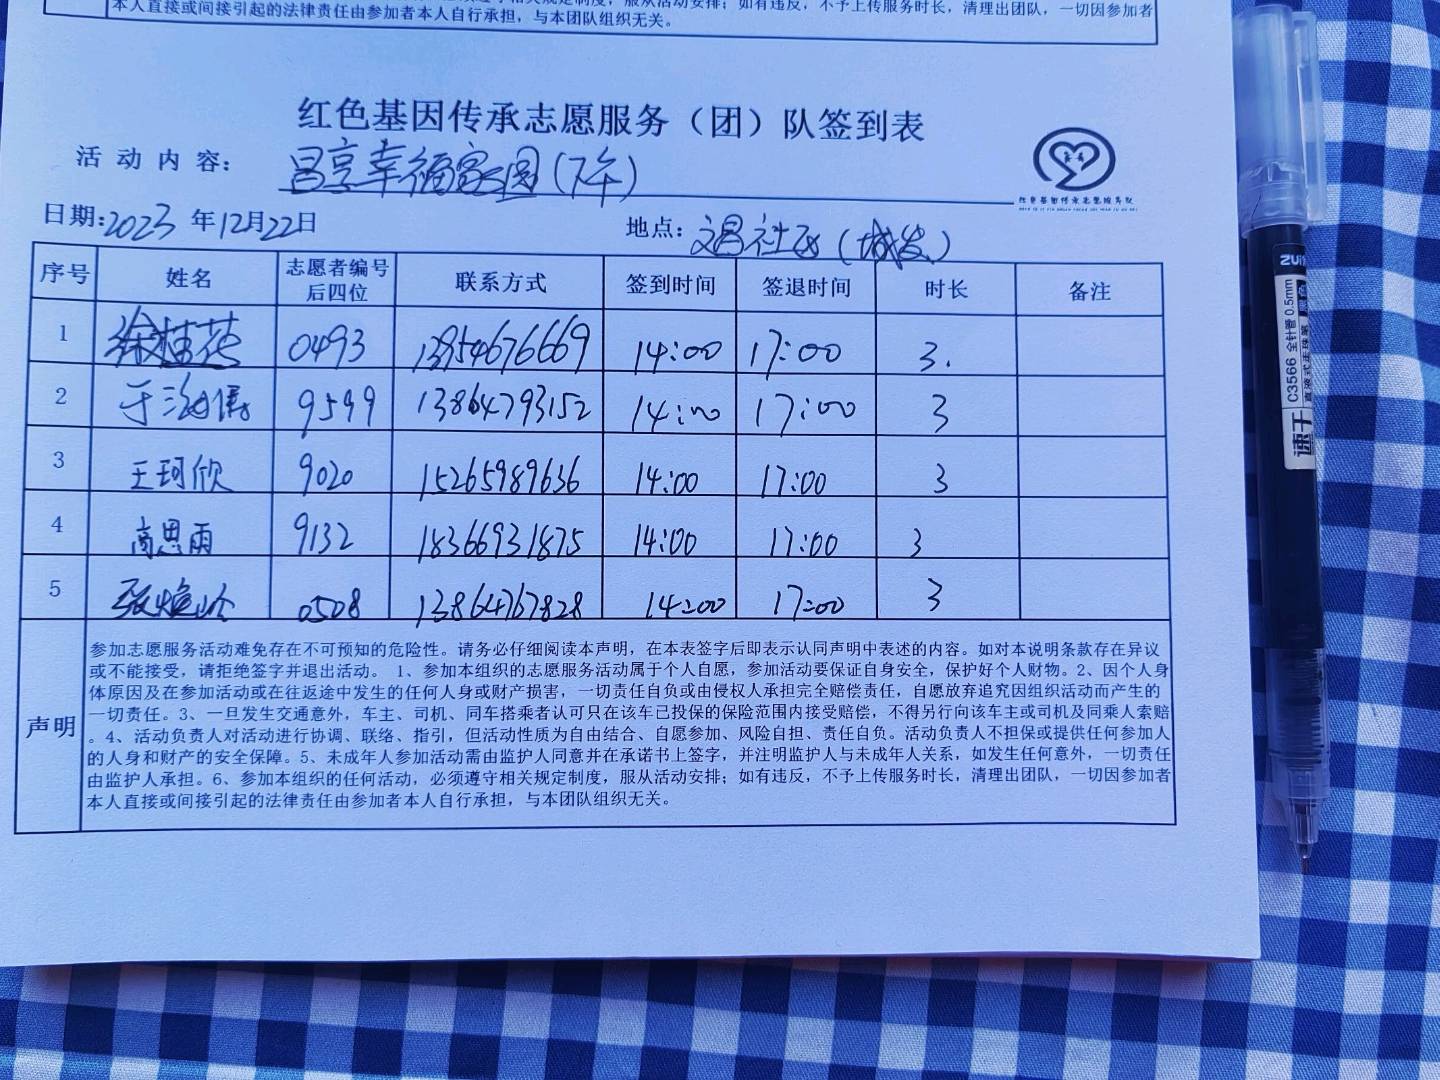 本人直接或间接引起的法律责任由参加者本人自行承担，与本团队组织无关。
红色基因传承志愿服务（团）队签到表
活动内容： 昌享幸福家园(下午)
日期:2023年12月22日 地点：文昌社区(城发)
序号 姓名 志愿者编号后四位 联系方式 签到时间 签退时间 时长 备注
1 徐桂花 0493 13954676669 14:00 17:00 3.
2 于海 9599 13864793152 14:00 17:00 3
3 王珂欣 9020 15265989636 14:00 17:00 3
4 高思雨 9132 18366931875 14:00 17:00 3
5 张 0508 13864767828 14:00 17:00 3
声明
参加志愿服务活动难免存在不可预知的危险性。请务必仔细阅读本声明，在本表签字后即表示认同声明中表述的内容。如对本说明条款存在异议
或不能接受，请拒绝签字并退出活动。 1、参加本组织的志愿服务活动属于个人自愿，参加活动要保证自身安全，保护好个人财物。2、因个人身
体原因及在参加活动或在往返途中发生的任何人身或财产损害，一切责任自负或由侵权人承担完全赔偿责任，自愿放弃追究因组织活动而产生的
一切责任。3、一旦发生交通意外，车主、司机、同车搭乘者认可只在该车已投保的保险范围内接受赔偿，不得另行向该车主或司机及同乘人索赔
。4、活动负责人对活动进行协调、联络、指引，但活动性质为自由结合、自愿参加、风险自担、责任自负。活动负责人不担保或提供任何参加人
的人身和财产的安全保障。5、未成年人参加活动需由监护人同意并在承诺书上签字，并注明监护人与未成年人关系，如发生任何意外，一切责任
由监护人承担。6、参加本组织的任何活动，必须遵守相关规定制度，服从活动安排；如有违反，不予上传服务时长，清理出团队，一切因参加者
本人直接或间接引起的法律责任由参加者本人自行承担，与本团队组织无关。
速干 C3566 全针管 0.5mm
直液式走珠笔